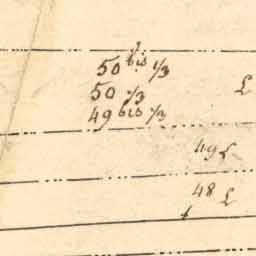 50 bis 1/3
50 1/3 £
49 bis 1/3
49 £
48 £